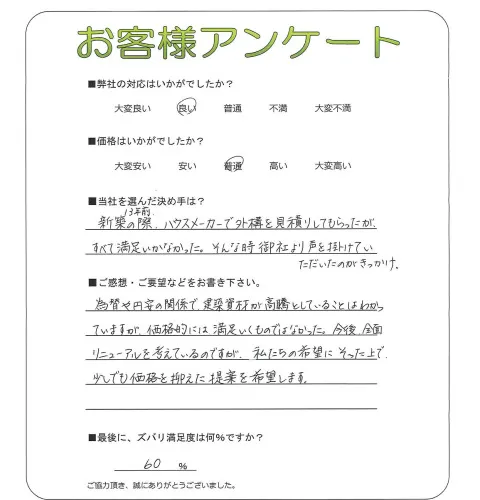 お客様アンケート
■弊社の対応はいかがでしたか？
大変良い 良い 普通 不満 大変不満
■価格はいかがでしたか？
大変安い 安い 普通 高い 大変高い
■当社を選んだ決め手は？
13年前
新築の際、ハウスメーカーで外構を見積りしてもらったが、
すべて満足いかなかった。そんな時御社より声を掛けてい
ただいたのがきっかけ。
■ご感想・ご要望などをお書き下さい。
為替や円安の関係で建築資材が高騰としていることはわかっ
ていますが、価格的には満足いくものではなかった。今後、全面
リニューアルを考えているのですが、私たちの希望にそった上で、
少しでも価格を抑えた提案を希望します。
■最後に、ズバリ満足度は何%ですか？
60 %
ご協力頂き、誠にありがとうございました。